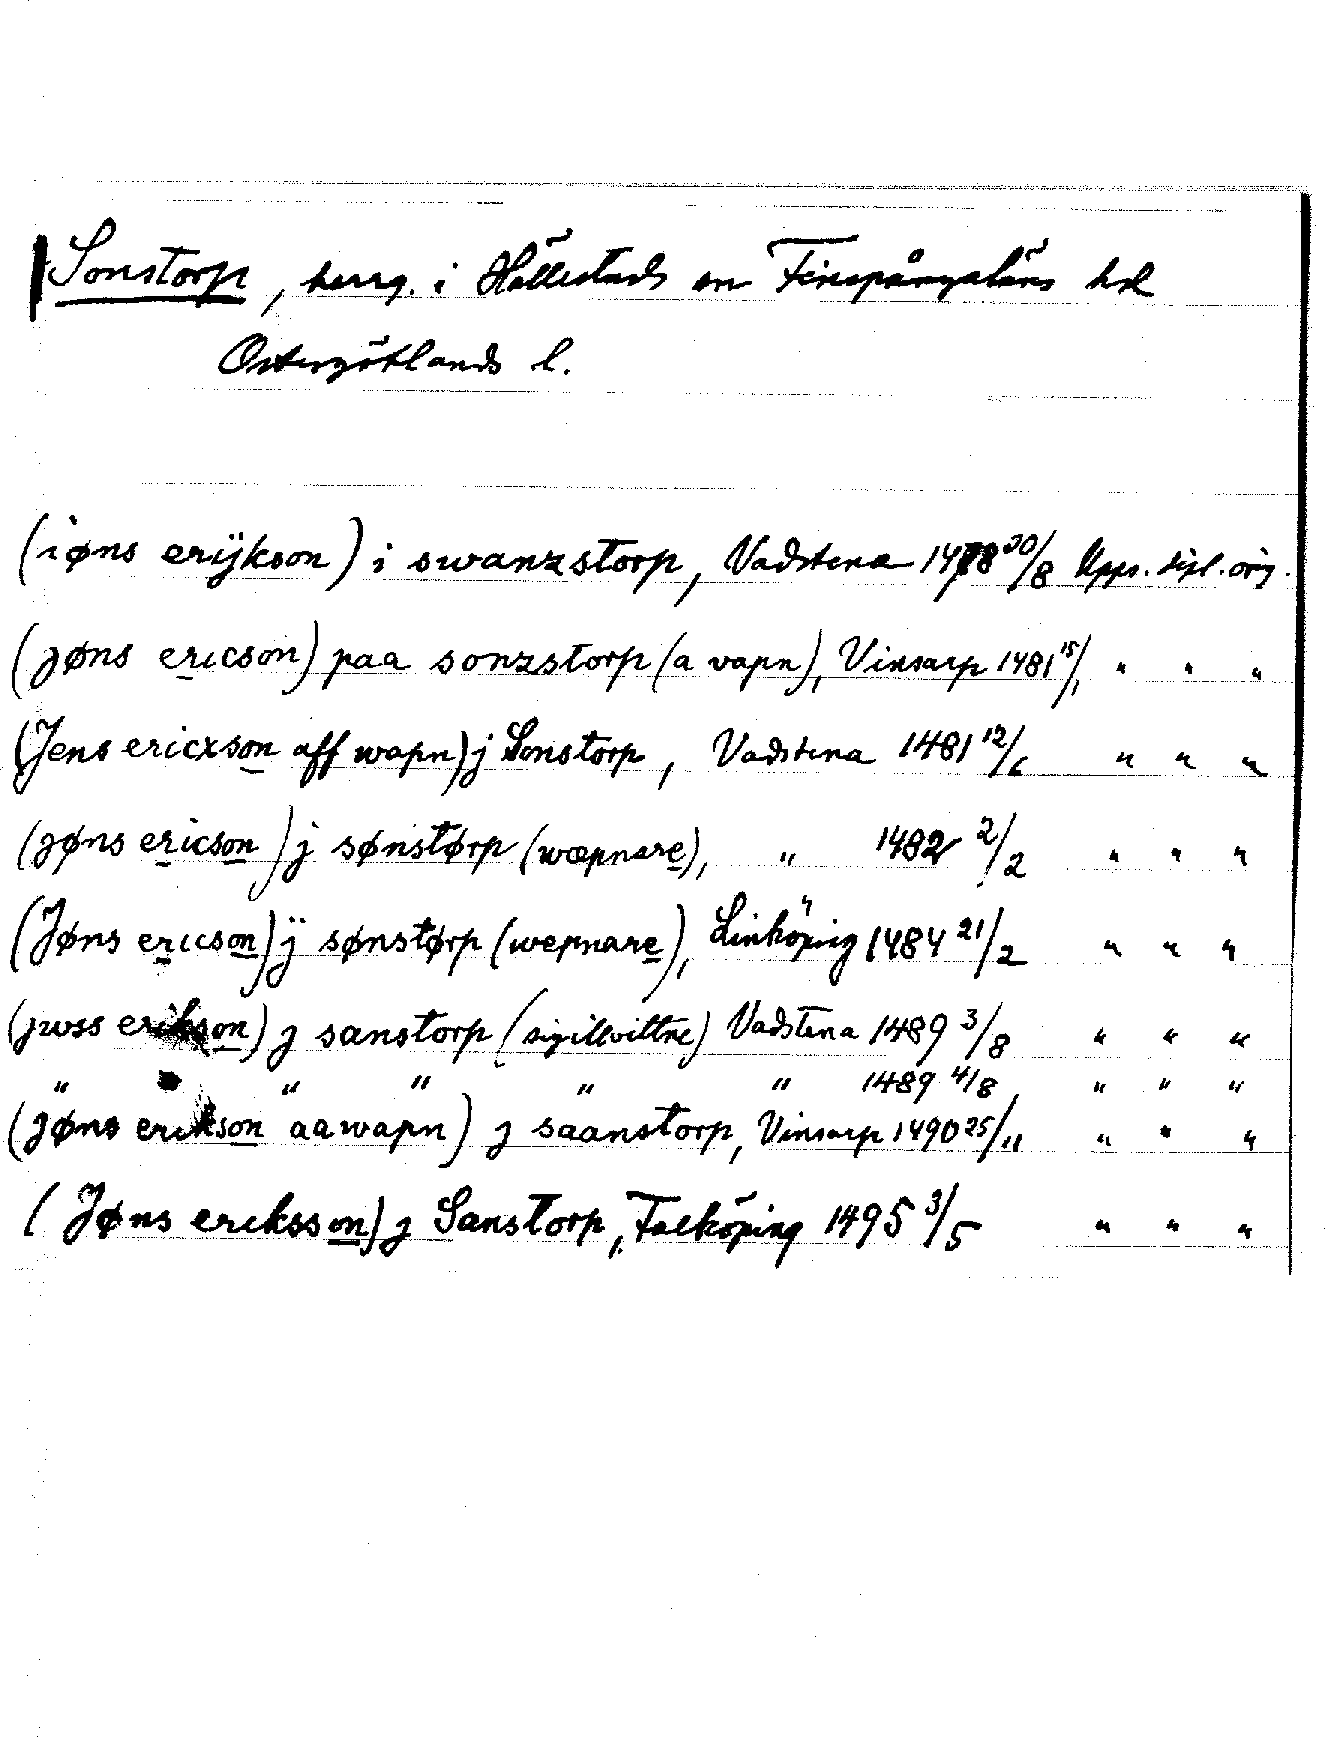 Sonstorp, herrg. i Hällestads sn Finspångaläns hd
Östergötlands l.
(iøns erijkson) i swanzstorp, Vadstena 1478 30/8 Upps. dipl. orig.
(jøns ericson) paa sonzstorp (a vapn), Vinsarp 1481 15/1 " " "
(Jens ericxson aff wapn) j Sonstorp, Vadstena 1481 12/6 " " "
(jøns ericson) j sønstørp (wæpnare), " 1482 2/2 " " "
(Jøns ericson) ÿ sønstørp (wepnare), Linköping 1484 21/2 " " "
(jwss erikson) j sanstorp (sigillvittne) Vadstena 1489 3/8 " " "
" " " " " " 1489 4/8, " " "
(jøns erikson aawapn) j saanstorp, Vinsarp 1490 25/11 " " "
(Jøns eriksson) j Sanstorp, Falköping 1495 3/5 " " "